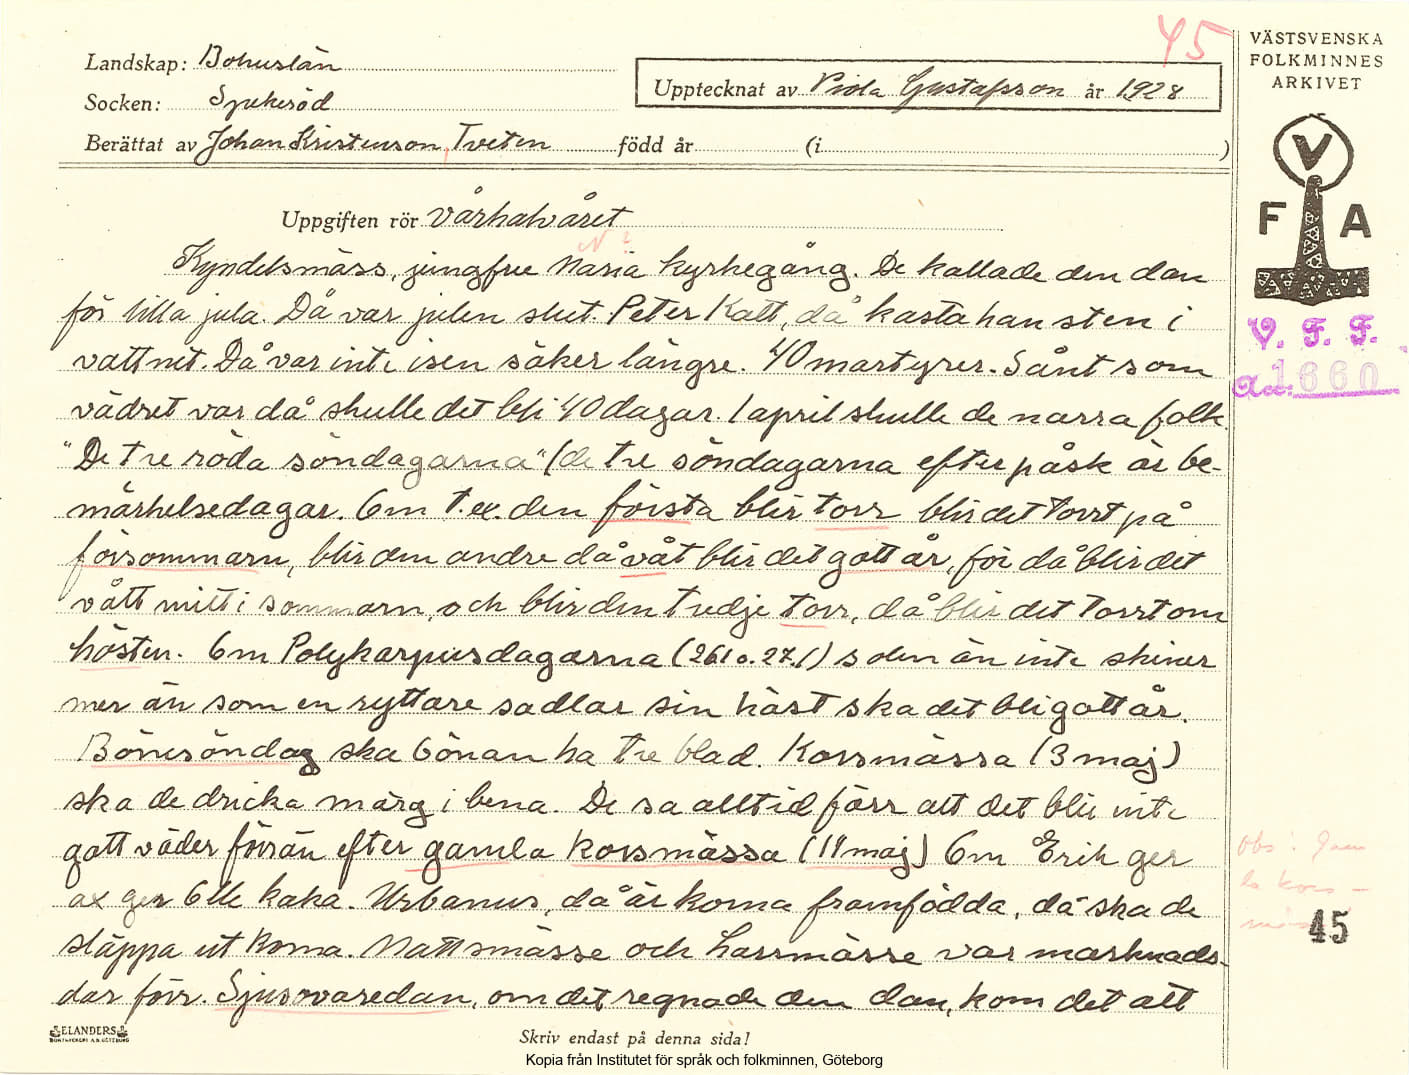 45
Landskap: Bohuslän
Socken: Spekeröd
Upptecknat av Viola Gustafsson år 1928
Berättat av Johan Kristenson, Tveten född år (i )
VÄSTSVENSKA
FOLKMINNES
ARKIVET
V
F A
V. F. F.
Acc: 1660
Uppgiften rör vårhalvåret
Kyndelsmäss, jungfru Maria kyrkegång. De kallade den dan
för lilla jula. Då var julen slut. Peter Katt, då kasta han sten i
vattnet. Då var inte isen säker längre. 40 martyrer. Sånt som
vädret var då skulle det bli 40 dagar. 1 april skulle de narra folk.
"De tre röda söndagarna" (de tre söndagarna efter påsk är be-
märkelsedagar. Om t.ex. den första blir torr blir det torrt på
försommarn, blir den andre då våt blir det gott år, för då blir det
vått mitt i sommarn, och blir den tredje torr, då blir det torrt om
hösten. Om Polykarpusdagarna (26/1 o. 27/1) solen än inte skiner
mer än som en ryttare sadlar sin häst ska det bli gott år.
Bönsöndag ska bönan ha tre blad. Korsmässa (3 maj)
ska de dricka märg i bena. De sa alltid förr att det blir inte
gott väder förrän efter gamla korsmässa (11 maj) Om Erik ger
ax ger Olle kaka. Urbanus, då är korna framfödda, då ska de
släppa ut korna. Mattsmässe och Larsmässe var marknads-
dar förr. Sjusovaredan, om det regnade den dan, kom det att
obs! Gam
la kors-
45
ELANDERS
BOKTRYCKERI A.B. GÖTEBORG
Skriv endast på denna sida!
Kopia från Institutet för språk och folkminnen, Göteborg